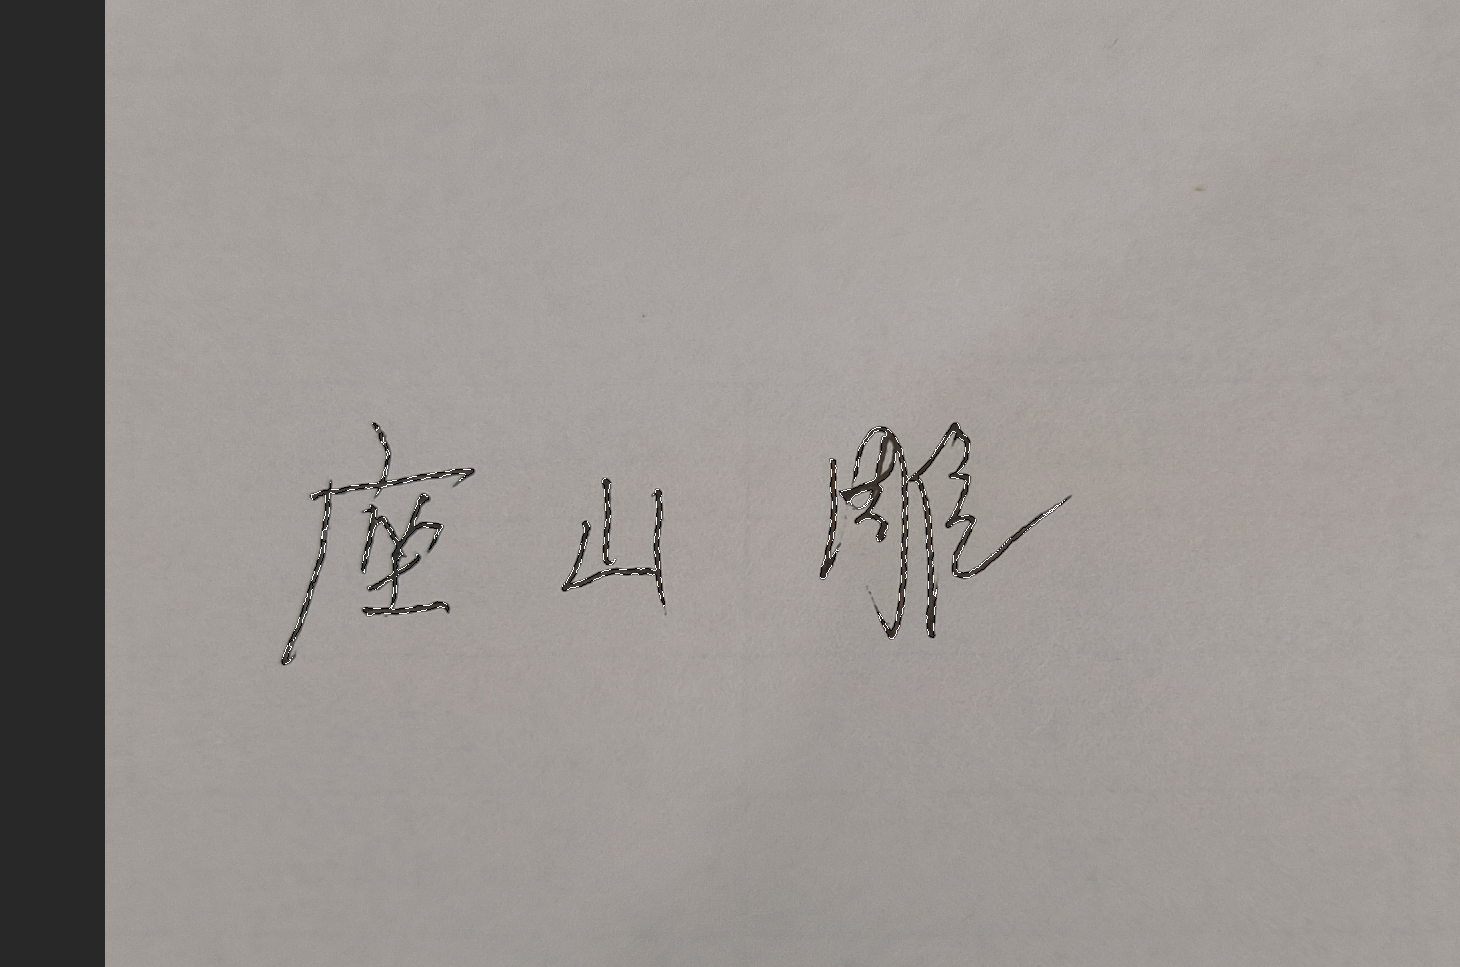 座山雕